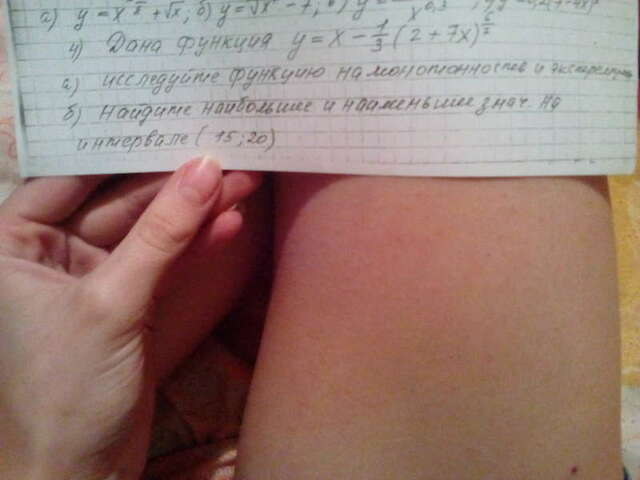 а) y = x + √x; б) y = - 7; в) y =
4) Дана функция y = x - 1/3 (2 + 7x)^6/7
а) исследуйте функцию на монотонность и экстремумы
б) Найдите наибольшие и наименьшие знач. на
интервале (15; 20)